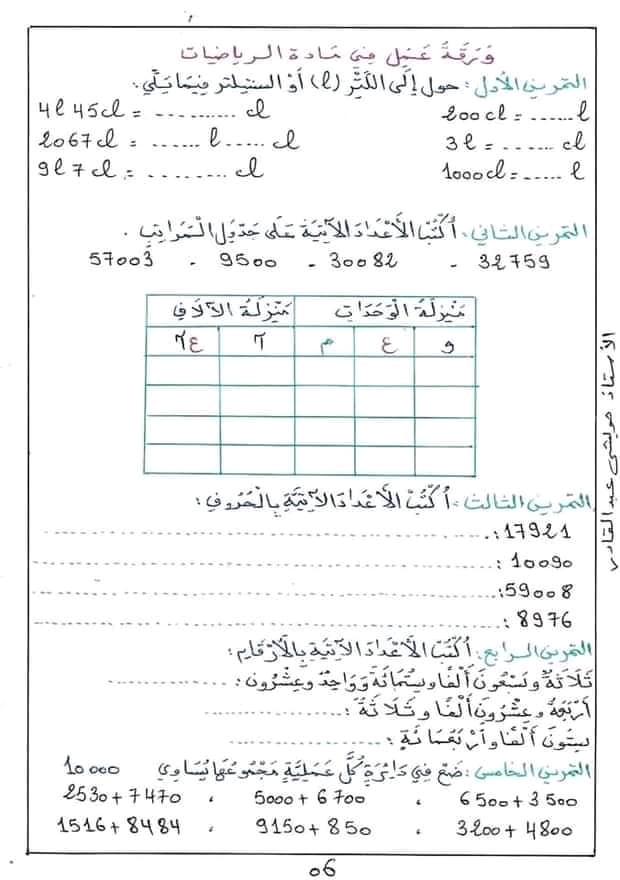 وَرَقَةُ عَمَلٍ فِي مَادة الرياضيات
التمرين الأول: حول إلى اللِّتْرِ (l) أَوْ السنتيلتر فِيمَا يَلِي.
200cl = ...... l    4l 45cl = .......... cl
3l = ...... cl    2067cl = ...... l ...... cl
1000cl = ..... l    9l 7cl = ........ cl
التمرين الثاني: أُكْتُبْ الأَعْدَادَ الآتِيَةَ عَلَى جَدْوَلِ الْمَرَاتِبِ.
32759 - 30082 - 9500 - 57003
مَنْزِلَةُ الْوَحَدَاتِ    مَنْزِلَةُ الآلَافِ
و    ع    م    آ    ع آ
التمرين الثالث: أُكْتُبْ الأَعْدَادَ الآتِيَةَ بِالْحُرُوفِ:
17921: ..........
10090: ..........
59008: ..........
8976: ..........
التمرين الرابع: أُكْتُبْ الأَعْدَادَ الآتِيَةَ بِالأَرْقَامِ:
ثَلَاثَةٌ وَتِسْعُونَ أَلْفًا وَسِتُّمَائَةٌ وَوَاحِدٌ وَعِشْرُونَ: ..........
أَرْبَعَةٌ وَعِشْرُونَ أَلْفًا وَثَلَاثَةٌ: ..........
سِتُّونَ أَلْفًا وَأَرْبَعُمَائَةٍ: ..........
التمرين الخامس: ضَعْ فِي دَائِرَةٍ كُلَّ عَمَلِيَّةٍ مَجْمُوعُهَا يُسَاوِي 10000
6500+3500 ، 5000+6700 ، 2530+7470
3200+4800 ، 9150+850 ، 1516+8484
الأستاذ حويشي عبد القادر
06